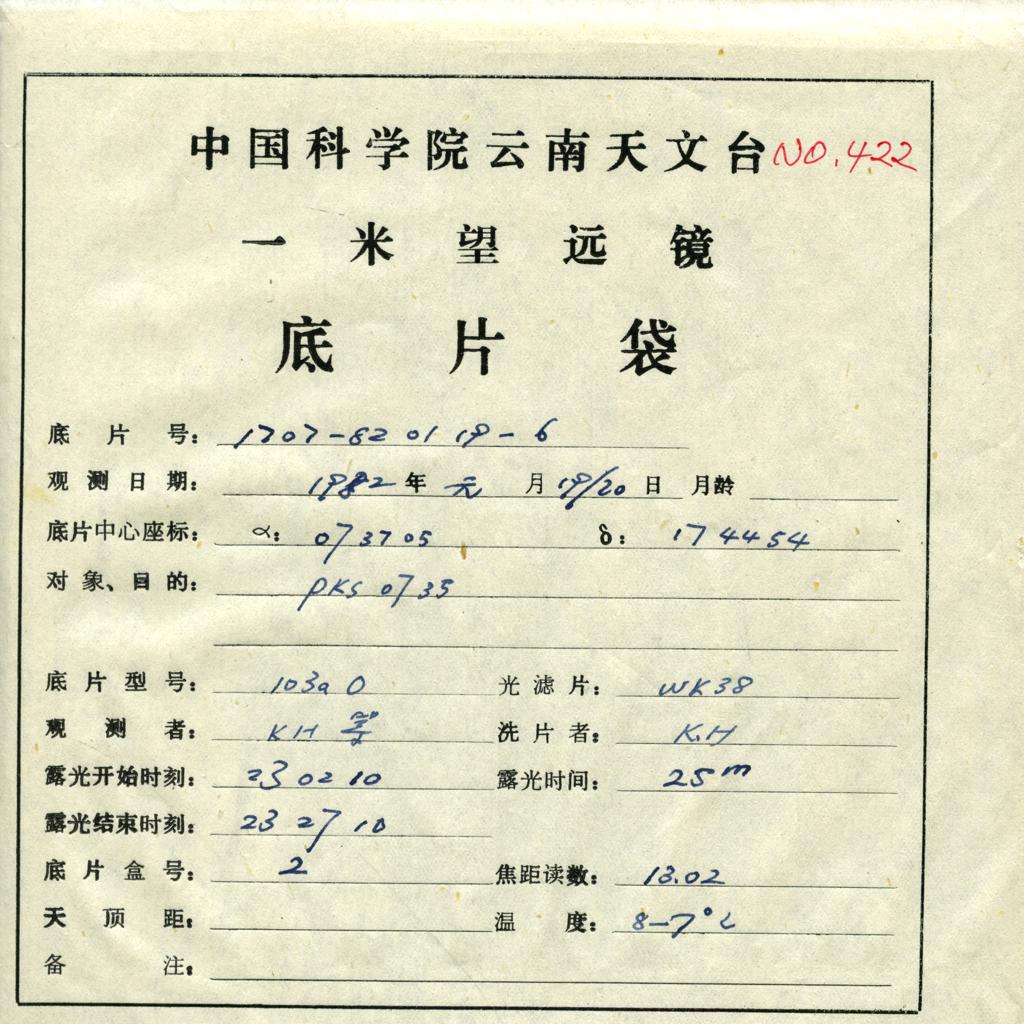 中国科学院云南天文台 NO.422
一米望远镜
底片袋
底片号: 1707-82 01 19-6
观测日期: 1982年 元 月 19/20 日 月龄
底片中心座标: α: 07 37 05 δ: 17 44 54
对象、目的: PKS 0735
底片型号: 103a O 光滤片: WK38
观测者: KH 等 洗片者: K.H
露光开始时刻: 23 02 10 露光时间: 25m
露光结束时刻: 23 27 10
底片盒号: 2 焦距读数: 13.02
天顶距: 温度: 8-7°C
备注: